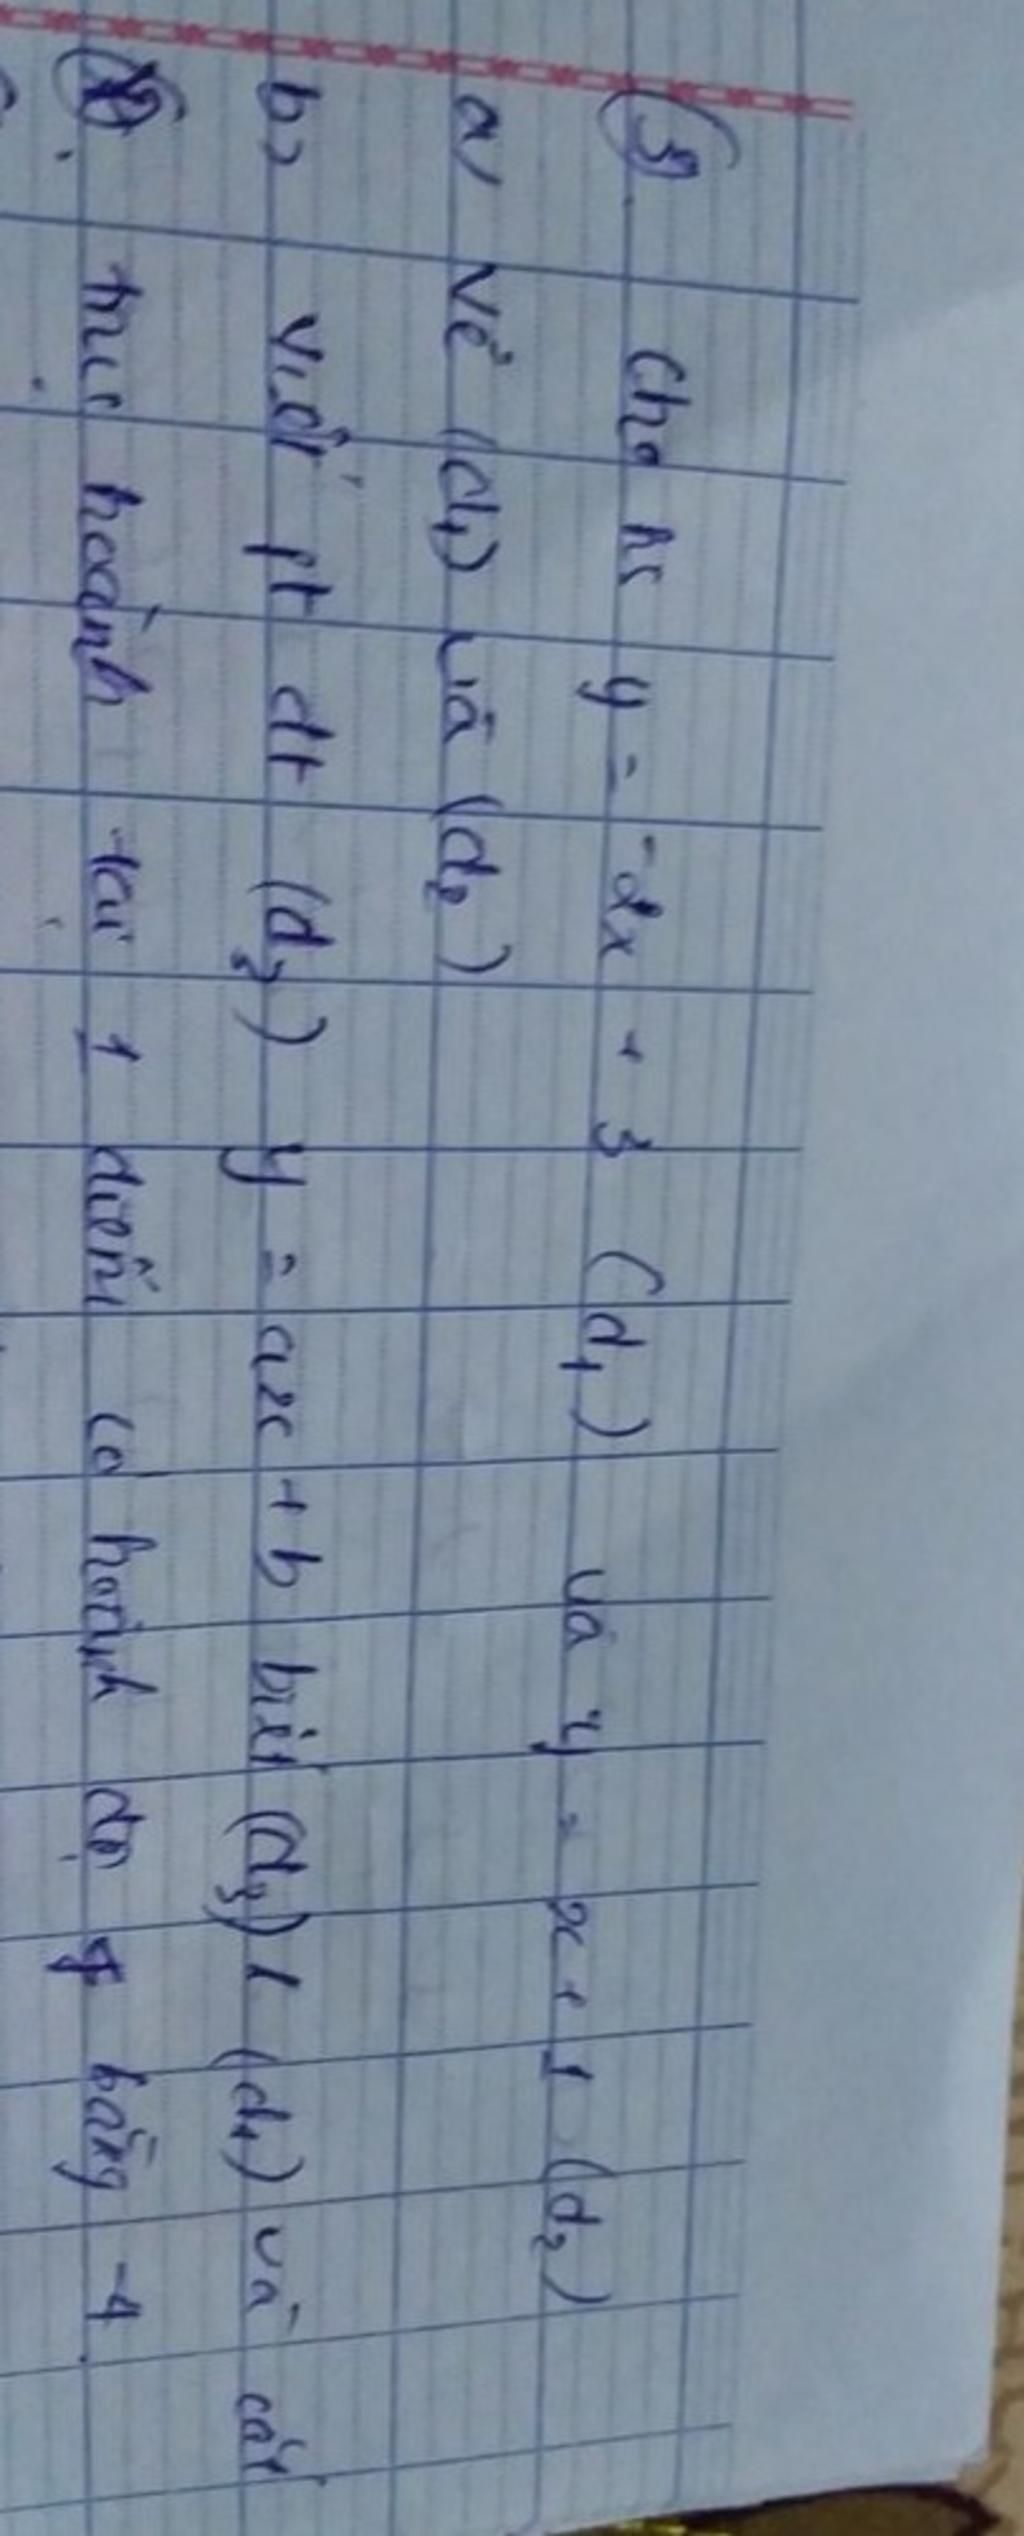 3) Cho hs y = -2x + 3 (d1) và y = x + 1 (d2)
a/ Vẽ (d1) và (d2)
b) Viết pt dt (d3) y = ax + b biết (d3) ⊥ (d1) và cắt
trục hoành tại 1 điểm có hoành độ bằng -4